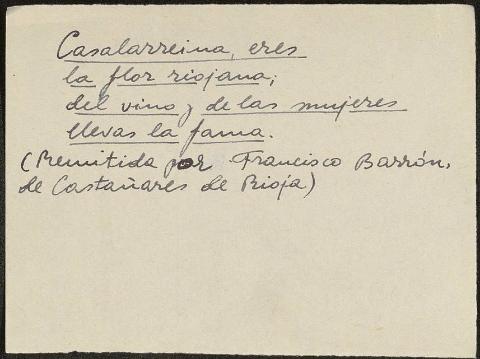 Casalarreina, eres
la flor riojana;
del vino y de las mujeres
llevas la fama.
(Remitida por Francisco Barrón,
de Castañares de Rioja)